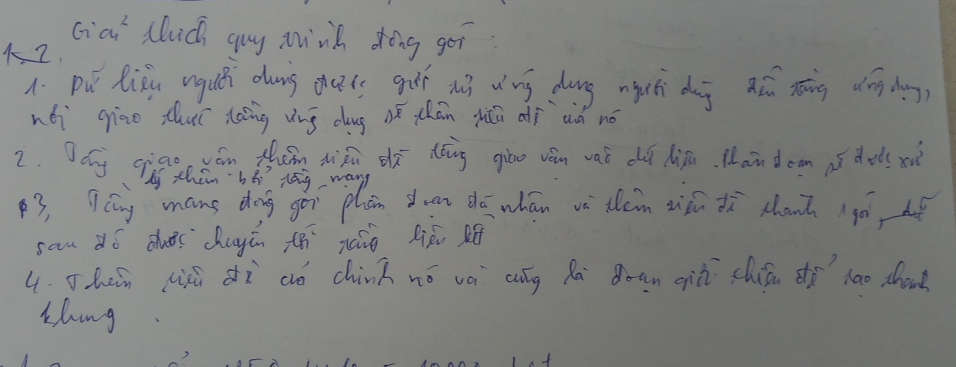 1.2. Giải thích quy trình đóng gói :
1. Dữ liệu người dùng được gửi từ ứng dụng người dùng đến tầng ứng dụng,
nơi giao thức tầng ứng dụng sẽ thêm tiêu đề của nó
2. Tầng giao vận thêm tiêu đề tầng giao vận vào dữ liệu. Phân đoạn sẽ được xử
lý thêm bởi tầng mạng
3, Tầng mạng đóng gói phân đoạn đã nhận và thêm tiêu đề thành 1 gói,
sau đó được chuyển tới tầng liên kết
4. Thêm tiêu đề của chính nó và cũng là đoạn giới thiệu để tạo thành
khung .